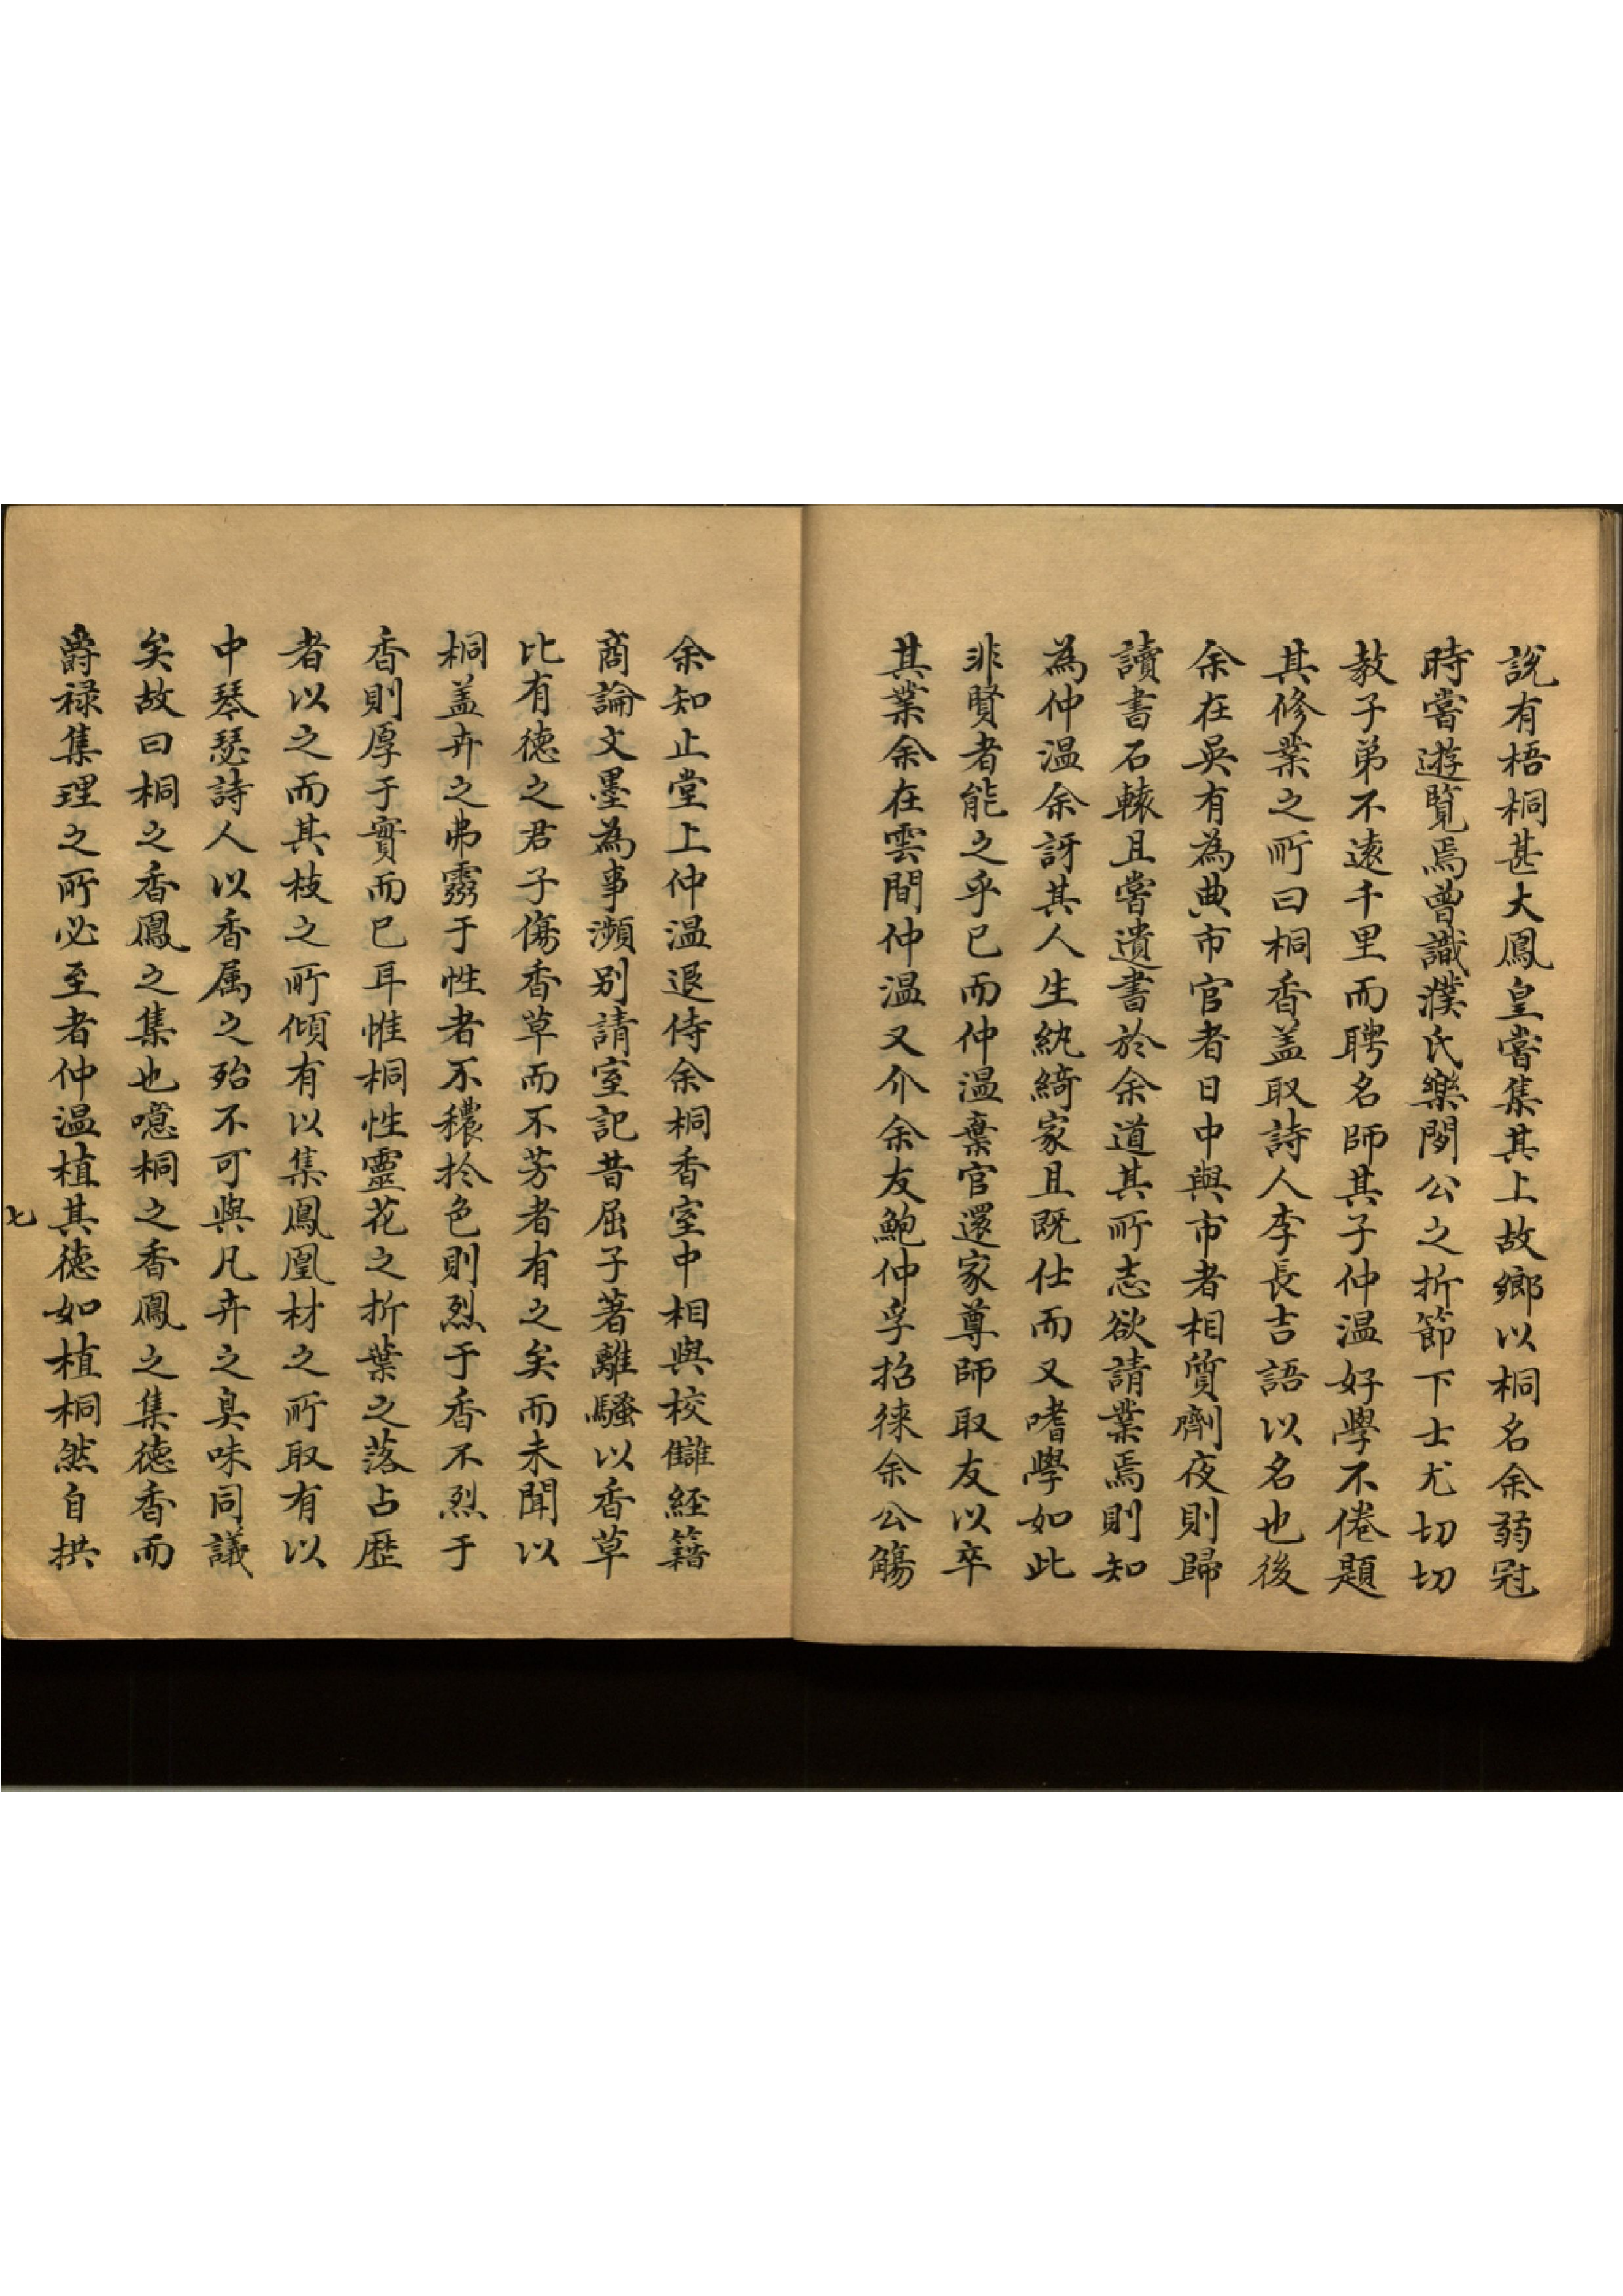 說有梧桐甚大鳳皇嘗集其上故鄉以桐名余弱冠
時嘗遊覧焉曽識濮氏樂閒公之折節下士尤切切
教子弟不逺千里而聘名師其子仲温好學不倦題
其修業之所曰桐香盖取詩人李長吉語以名也後
余在吳有為典市官者日中與市者相質劑夜則歸
讀書石轅且嘗遺書於余道其所志欲請業焉則知
為仲温余訝其人生紈綺家且既仕而又嗜學如此
非賢者能之乎已而仲温棄官還家尊師取友以卒
其業余在雲間仲温又介余友鮑仲孚招徠余公觴
余知止堂上仲温退侍余桐香室中相與校讎経籍
商論文墨為事瀕别請室記昔屈子著離騷以香草
比有德之君子傷香草而不芳者有之矣而未聞以
桐盖卉之弗霧于性者不穠於色則烈于香不烈于
香則厚于實而已耳惟桐性靈花之折葉之落占歴
者以之而其枝之所傾有以集鳳凰材之所取有以
中琴瑟詩人以香属之殆不可與凡卉之臭味同議
矣故曰桐之香鳳之集也噫桐之香鳳之集德香而
爵禄集理之所必至者仲温植其德如植桐然自拱
七